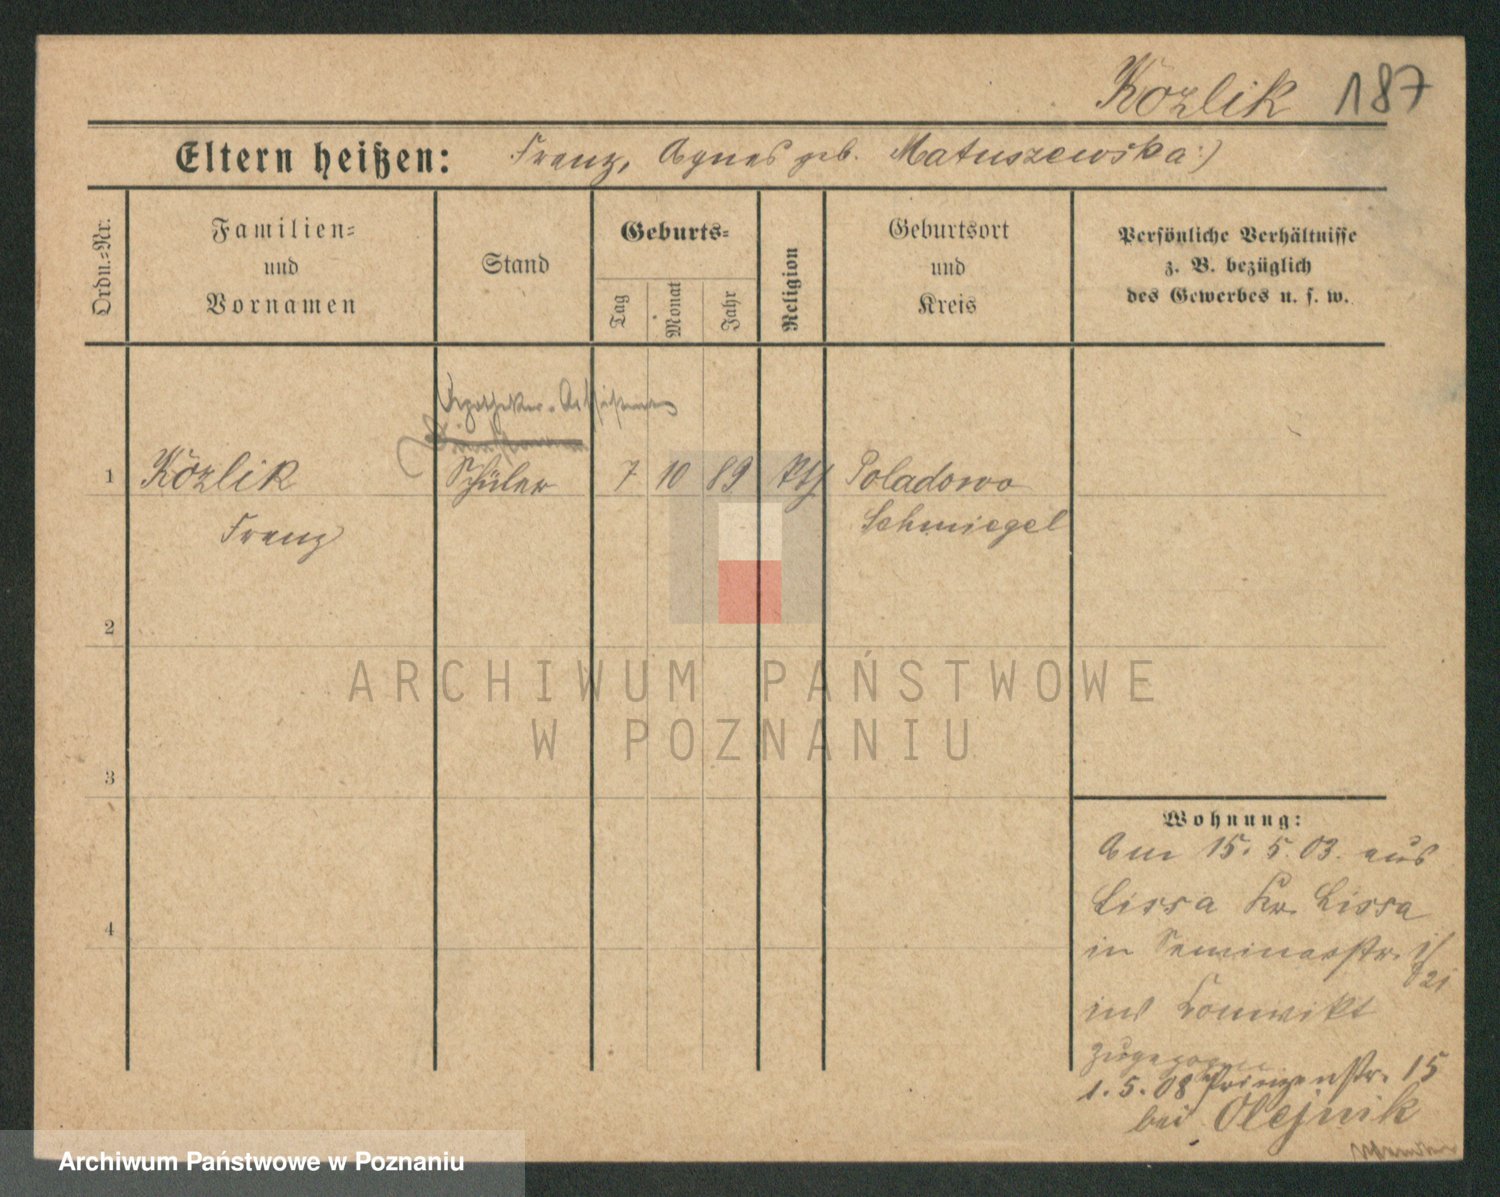 Kozlik 187
Eltern heißen: Franz, Agnes geb. Matuszewska :)
Ordn.-Nr.
Familien-
und
Vornamen
Stand
Geburts-
Tag
Monat
Jahr
Religion
Geburtsort
und
Kreis
Persönliche Verhältnisse
z. B. bezüglich
des Gewerbes u. s. w.
Apotheker-
1 Kozlik Schüler 7 10 89 Poladowo
Franz Schmiegel
2
3
4
Wohnung:
Am 15. 5. 03. aus
Lissa Kr. Lissa
in Seminarstr.
21
ins Konvikt
zugezogen
1. 5. 08 Prinzenstr. 15
bei Olejnik
ARCHIWUM PAŃSTWOWE
W POZNANIU
Archiwum Państwowe w Poznaniu